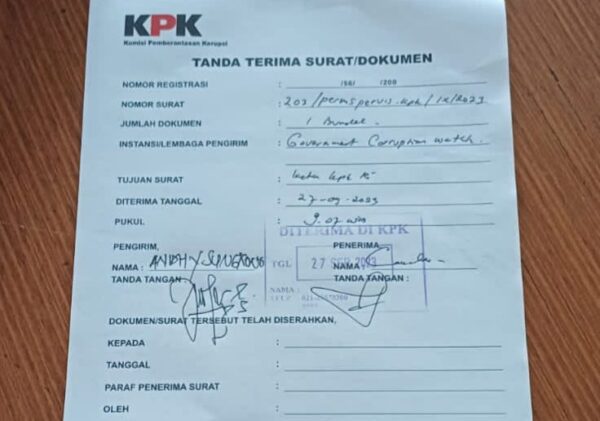 KPK
Komisi Pemberantasan Korupsi
TANDA TERIMA SURAT/DOKUMEN
NOMOR REGISTRASI : /56/ /200
NOMOR SURAT : 203/
JUMLAH DOKUMEN : 1 Bundel.
INSTANSI/LEMBAGA PENGIRIM : Government Corruption watch.
TUJUAN SURAT : kpk
DITERIMA TANGGAL : 27-09-2023
PUKUL : 9.07 wib
DITERIMA DI KPK
PENGIRIM, PENERIMA
TGL 27 SEP 2023
NAMA : NAMA :
TANDA TANGAN : TANDA TANGAN :
NAMA :
DOKUMEN/SURAT TERSEBUT TELAH DISERAHKAN,
KEPADA :
TANGGAL :
PARAF PENERIMA SURAT :
OLEH :